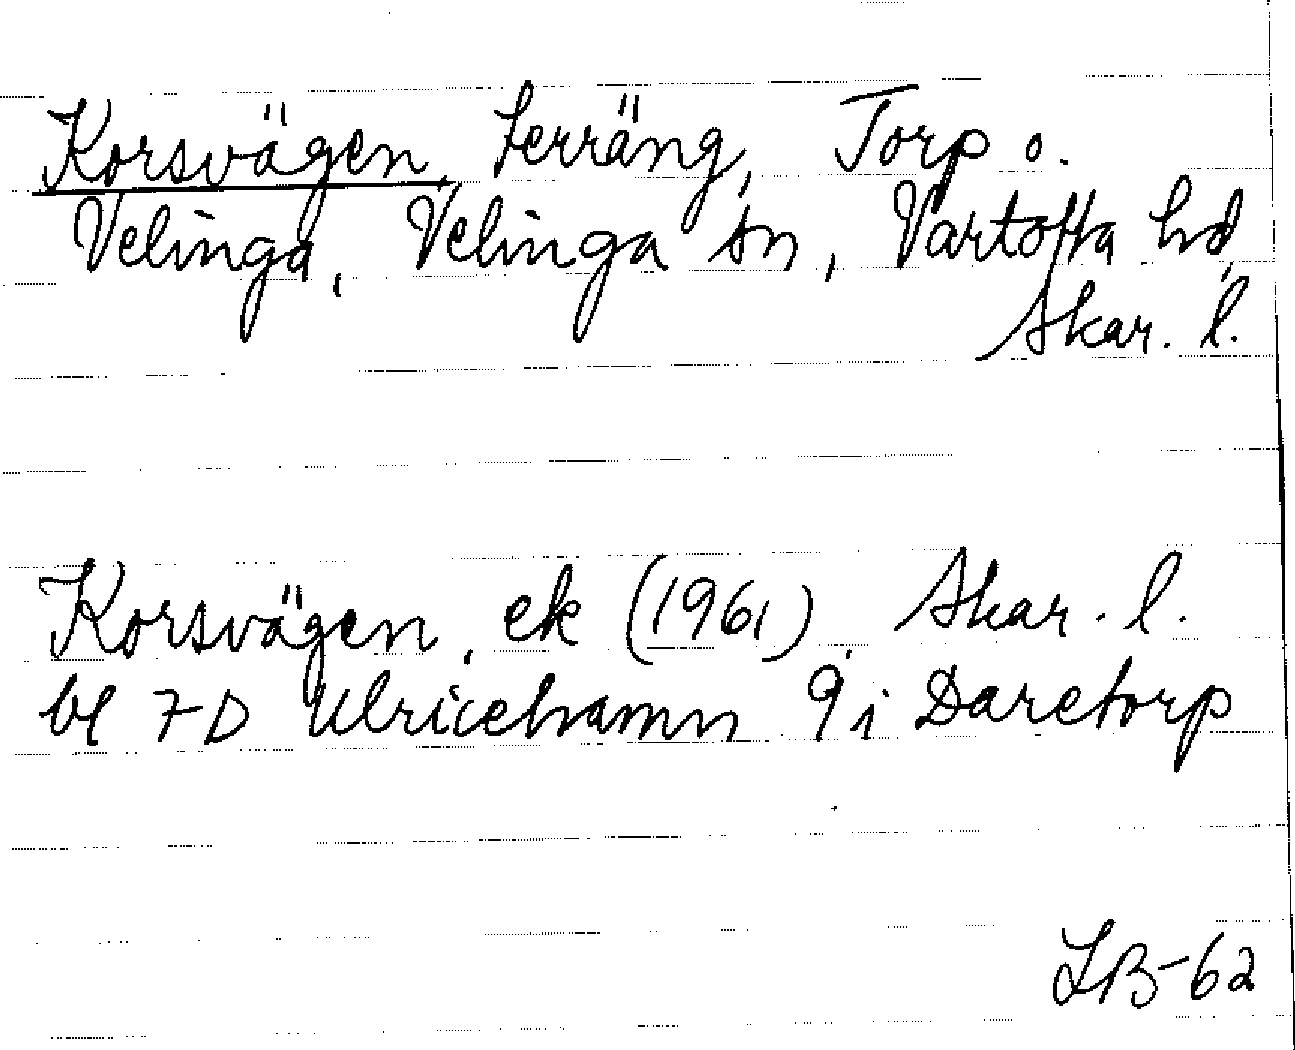 Korsvägen, terräng, Torp o.
Velinga, Velinga sn, Vartofta hd,
Skar. l.
Korsvägen, ek (1961), Skar. l.
bl 7D Ulricehamn 9 i Daretorp
LB-62